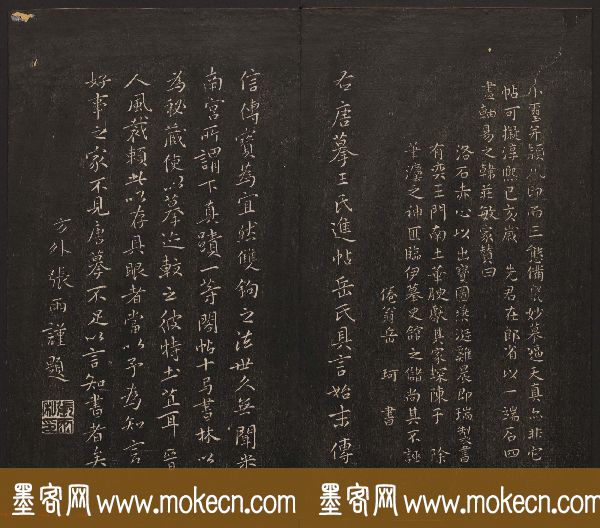 小璽并潁川印而三態備衆妙墓逼天真亦非它
帖可擬淳熙己亥歲 先君在郎省以一端石四
畫軸易之歸莊敏家贊曰
洛石赤心以出寶圖
有奕王門南土華腴厥其家琛陳于 除
華瀛之神匹臨伊墓史館之儲尚其不誣
倦翁岳 珂 書
右唐摹王氏進帖岳氏具言始末傳
信傳寶為宜然雙鉤之法世久無聞米
南宮所謂下真蹟一等閣帖十馬書林以
為秘藏使以摹迹較之彼特土苴耳 晉
人風裁賴此以存具眼者當以予為知言
好事之家不見唐摹不足以言知書者矣
方外張雨謹題
墨客网 www.mokecn.com
墨客网 www.mokecn.com